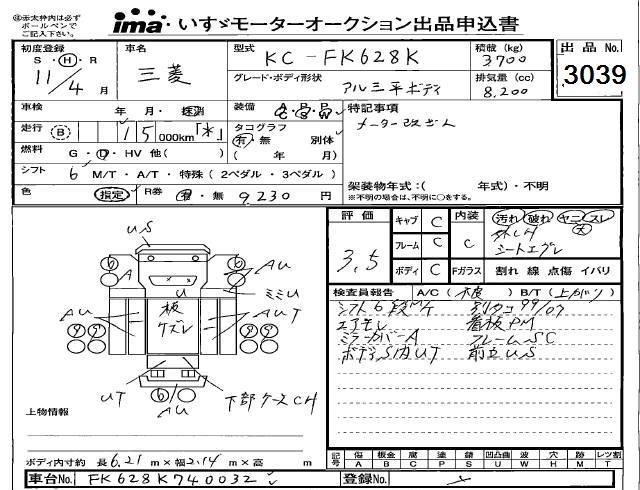 ※赤太枠内は必ず
ボールペンで
ご記入下さい。
ima・いすゞモーターオークション出品申込書
初度登録
S・H・R
11/4月
車名
三菱
型式
KC-FK628K
グレード・ボディ形状
アルミ平ボディ
積載 (kg)
3700
排気量 (cc)
8,200
出品 No.
3039
車検
年・月・抹消
走行 B
15000km「*」
燃料
G・D・HV 他( )
シフト
6 M/T・A/T・特殊(2ペダル・3ペダル)
色
指定
R券 有・無 9230円
装備
A・P・P
C・S・W
タコグラフ
有・無 別体
( 年 月)
特記事項
メーター改ざん
架装物年式:( 年式)・不明
※不明の場合は、不明に○をする。
評価
3.5
キャブ C
フレーム C
ボディ C
内装
C
Fガラス
汚れ 破れ ヤニ スレ
大
シートエグレ
割れ 線 点傷 イバリ
検査員報告
A/C( ) B/T(上がり)
シフト6段M/T
別タコ 99/07
エアモレ
看板PM
ミラーカバーA
フレームSC
ボディS内UT
前立US
US
AU
ミミU
U
板
ケズレ
A
AU
AUT
UT
AU
下部ケースCH
上物情報
ボディ内寸約 長6.21m×幅2.14m×高 m
記号
傷 板金 腐 塗 錆 凹凸曲 波 穴 跡 レツ割
A B C P S U W H M T
車台No. FK628K740032
登録No.